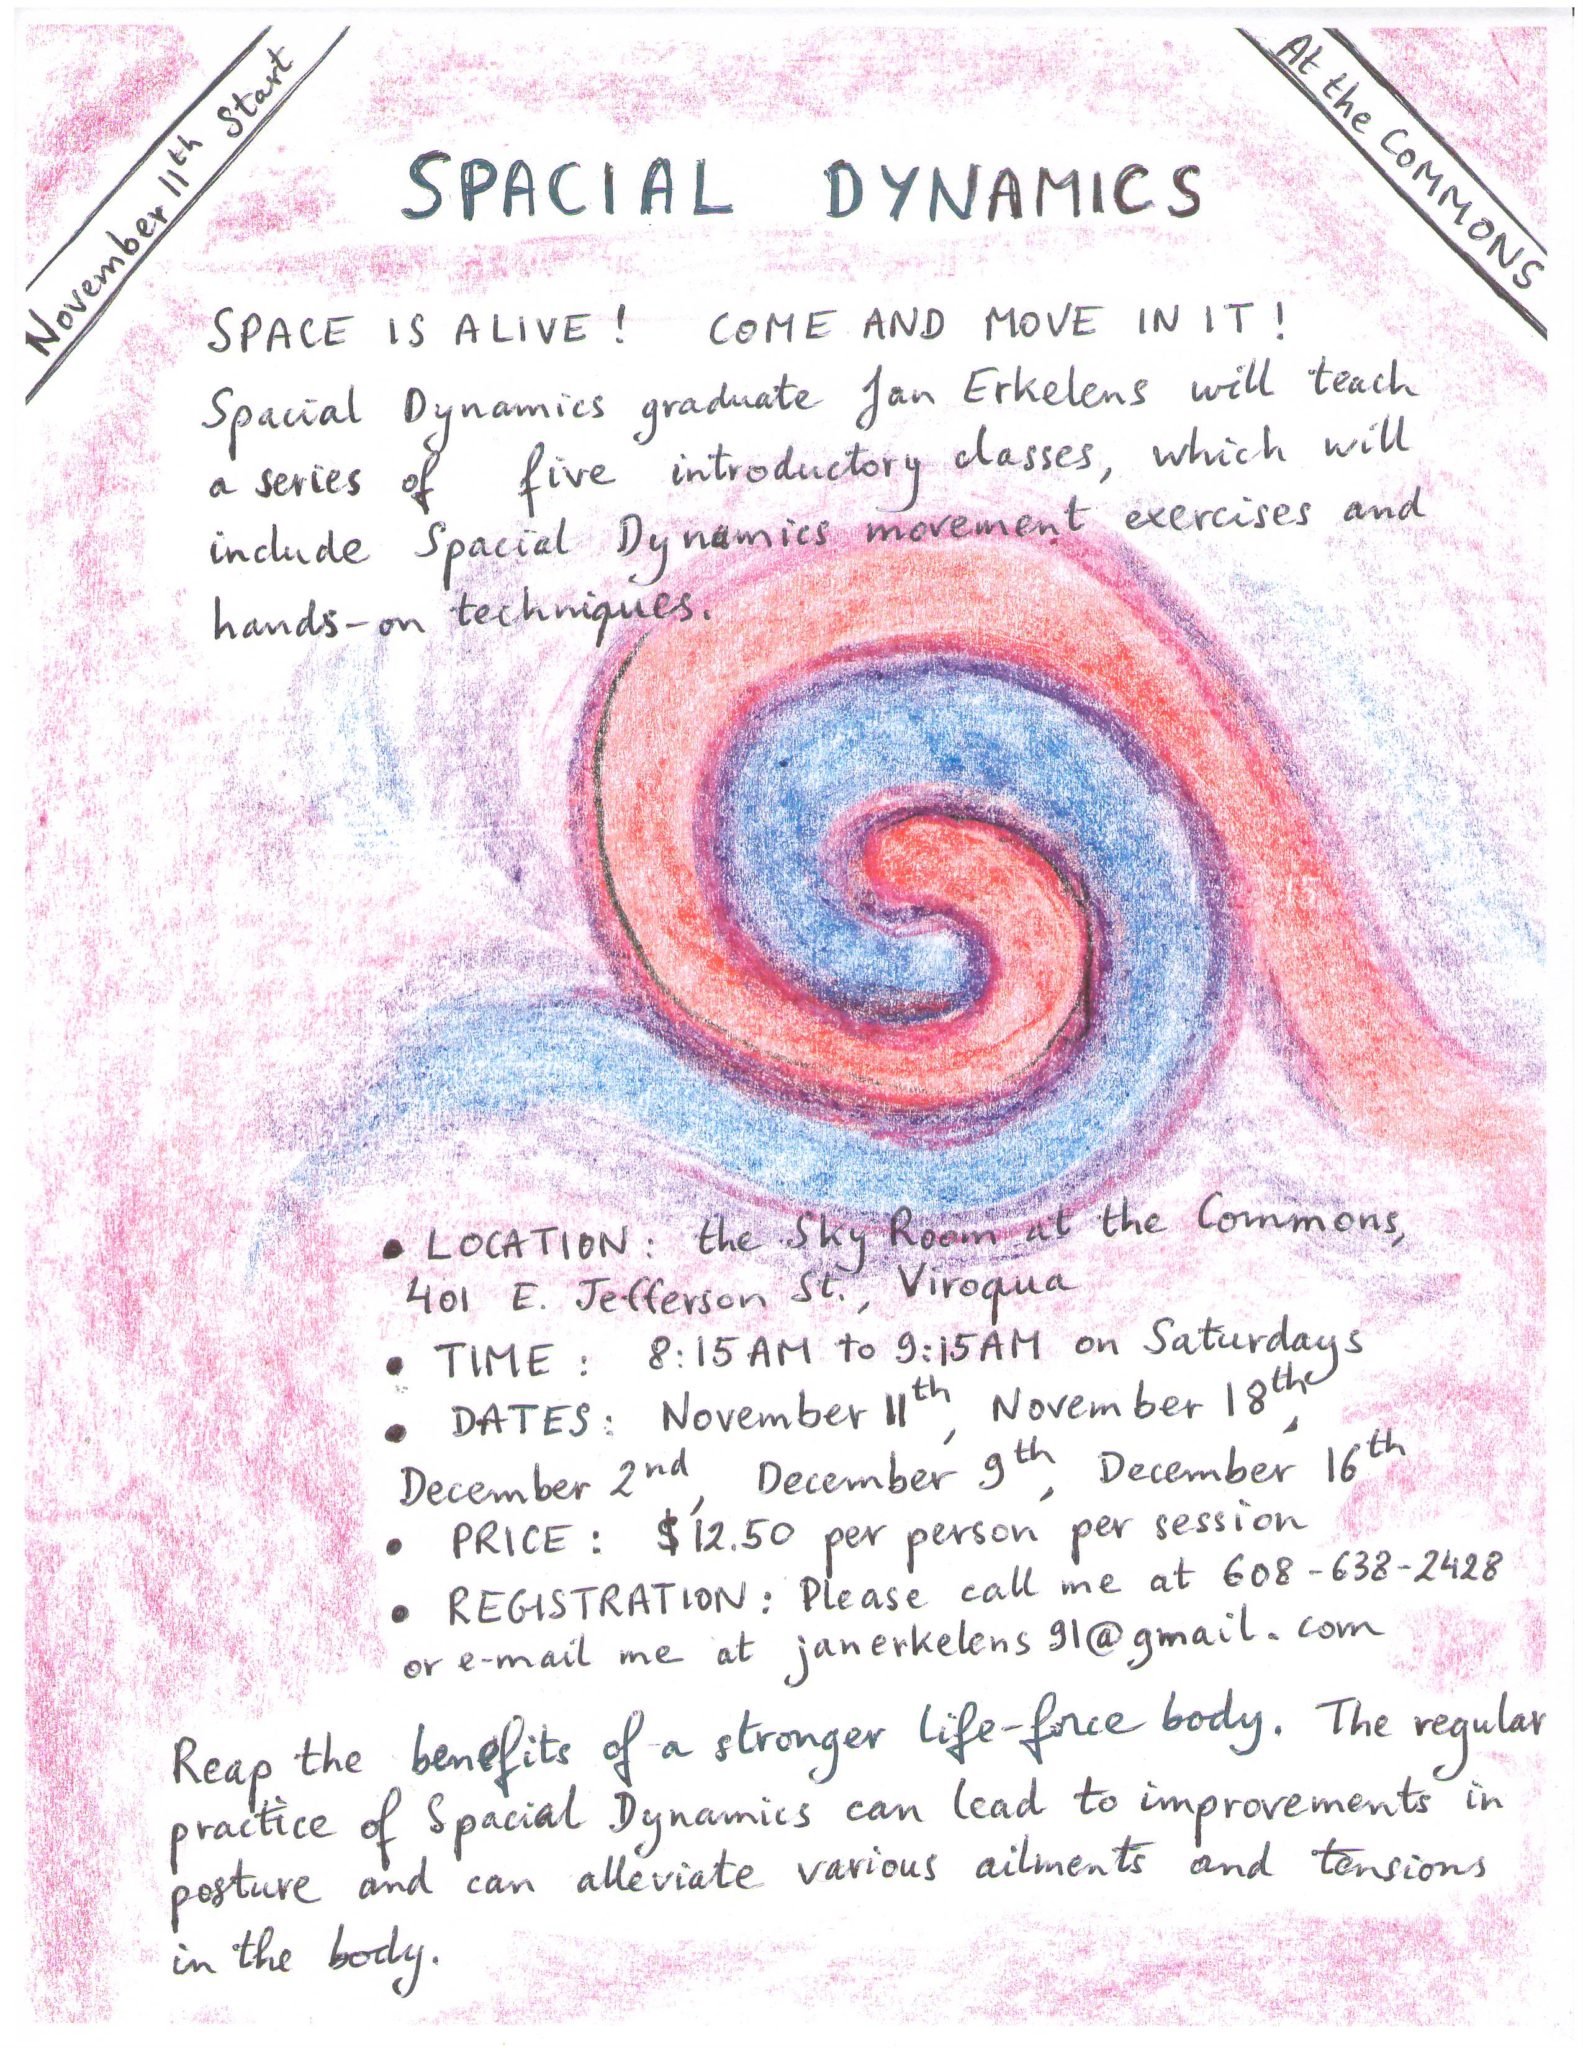 November 11th Start
At the COMMONS
SPACIAL DYNAMICS
SPACE IS ALIVE! COME AND MOVE IN IT!
Spacial Dynamics graduate Jan Erkelens will teach
a series of five introductory classes, which will
include Spacial Dynamics movement exercises and
hands-on techniques.
• LOCATION: the Sky Room at the Commons,
401 E. Jefferson St., Viroqua
• TIME: 8:15AM to 9:15AM on Saturdays
• DATES: November 11th, November 18th,
December 2nd, December 9th, December 16th
• PRICE: $12.50 per person per session
• REGISTRATION: Please call me at 608-638-2428
or e-mail me at janerkelens91@gmail.com
Reap the benefits of a stronger life-force body. The regular
practice of Spacial Dynamics can lead to improvements in
posture and can alleviate various ailments and tensions
in the body.